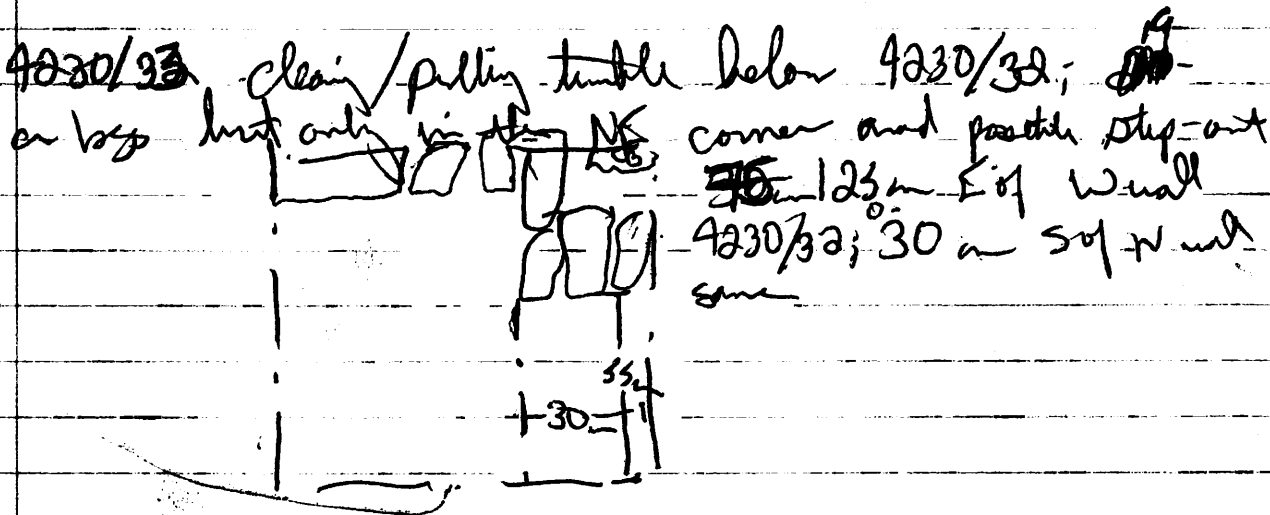 4230/33 cleaing/pulling tumble below 4230/32; 19
on bgs but only in the NE corner and possible step-out
125 cm E of W wall
4230/32; 30 cm S of N wall
same
30